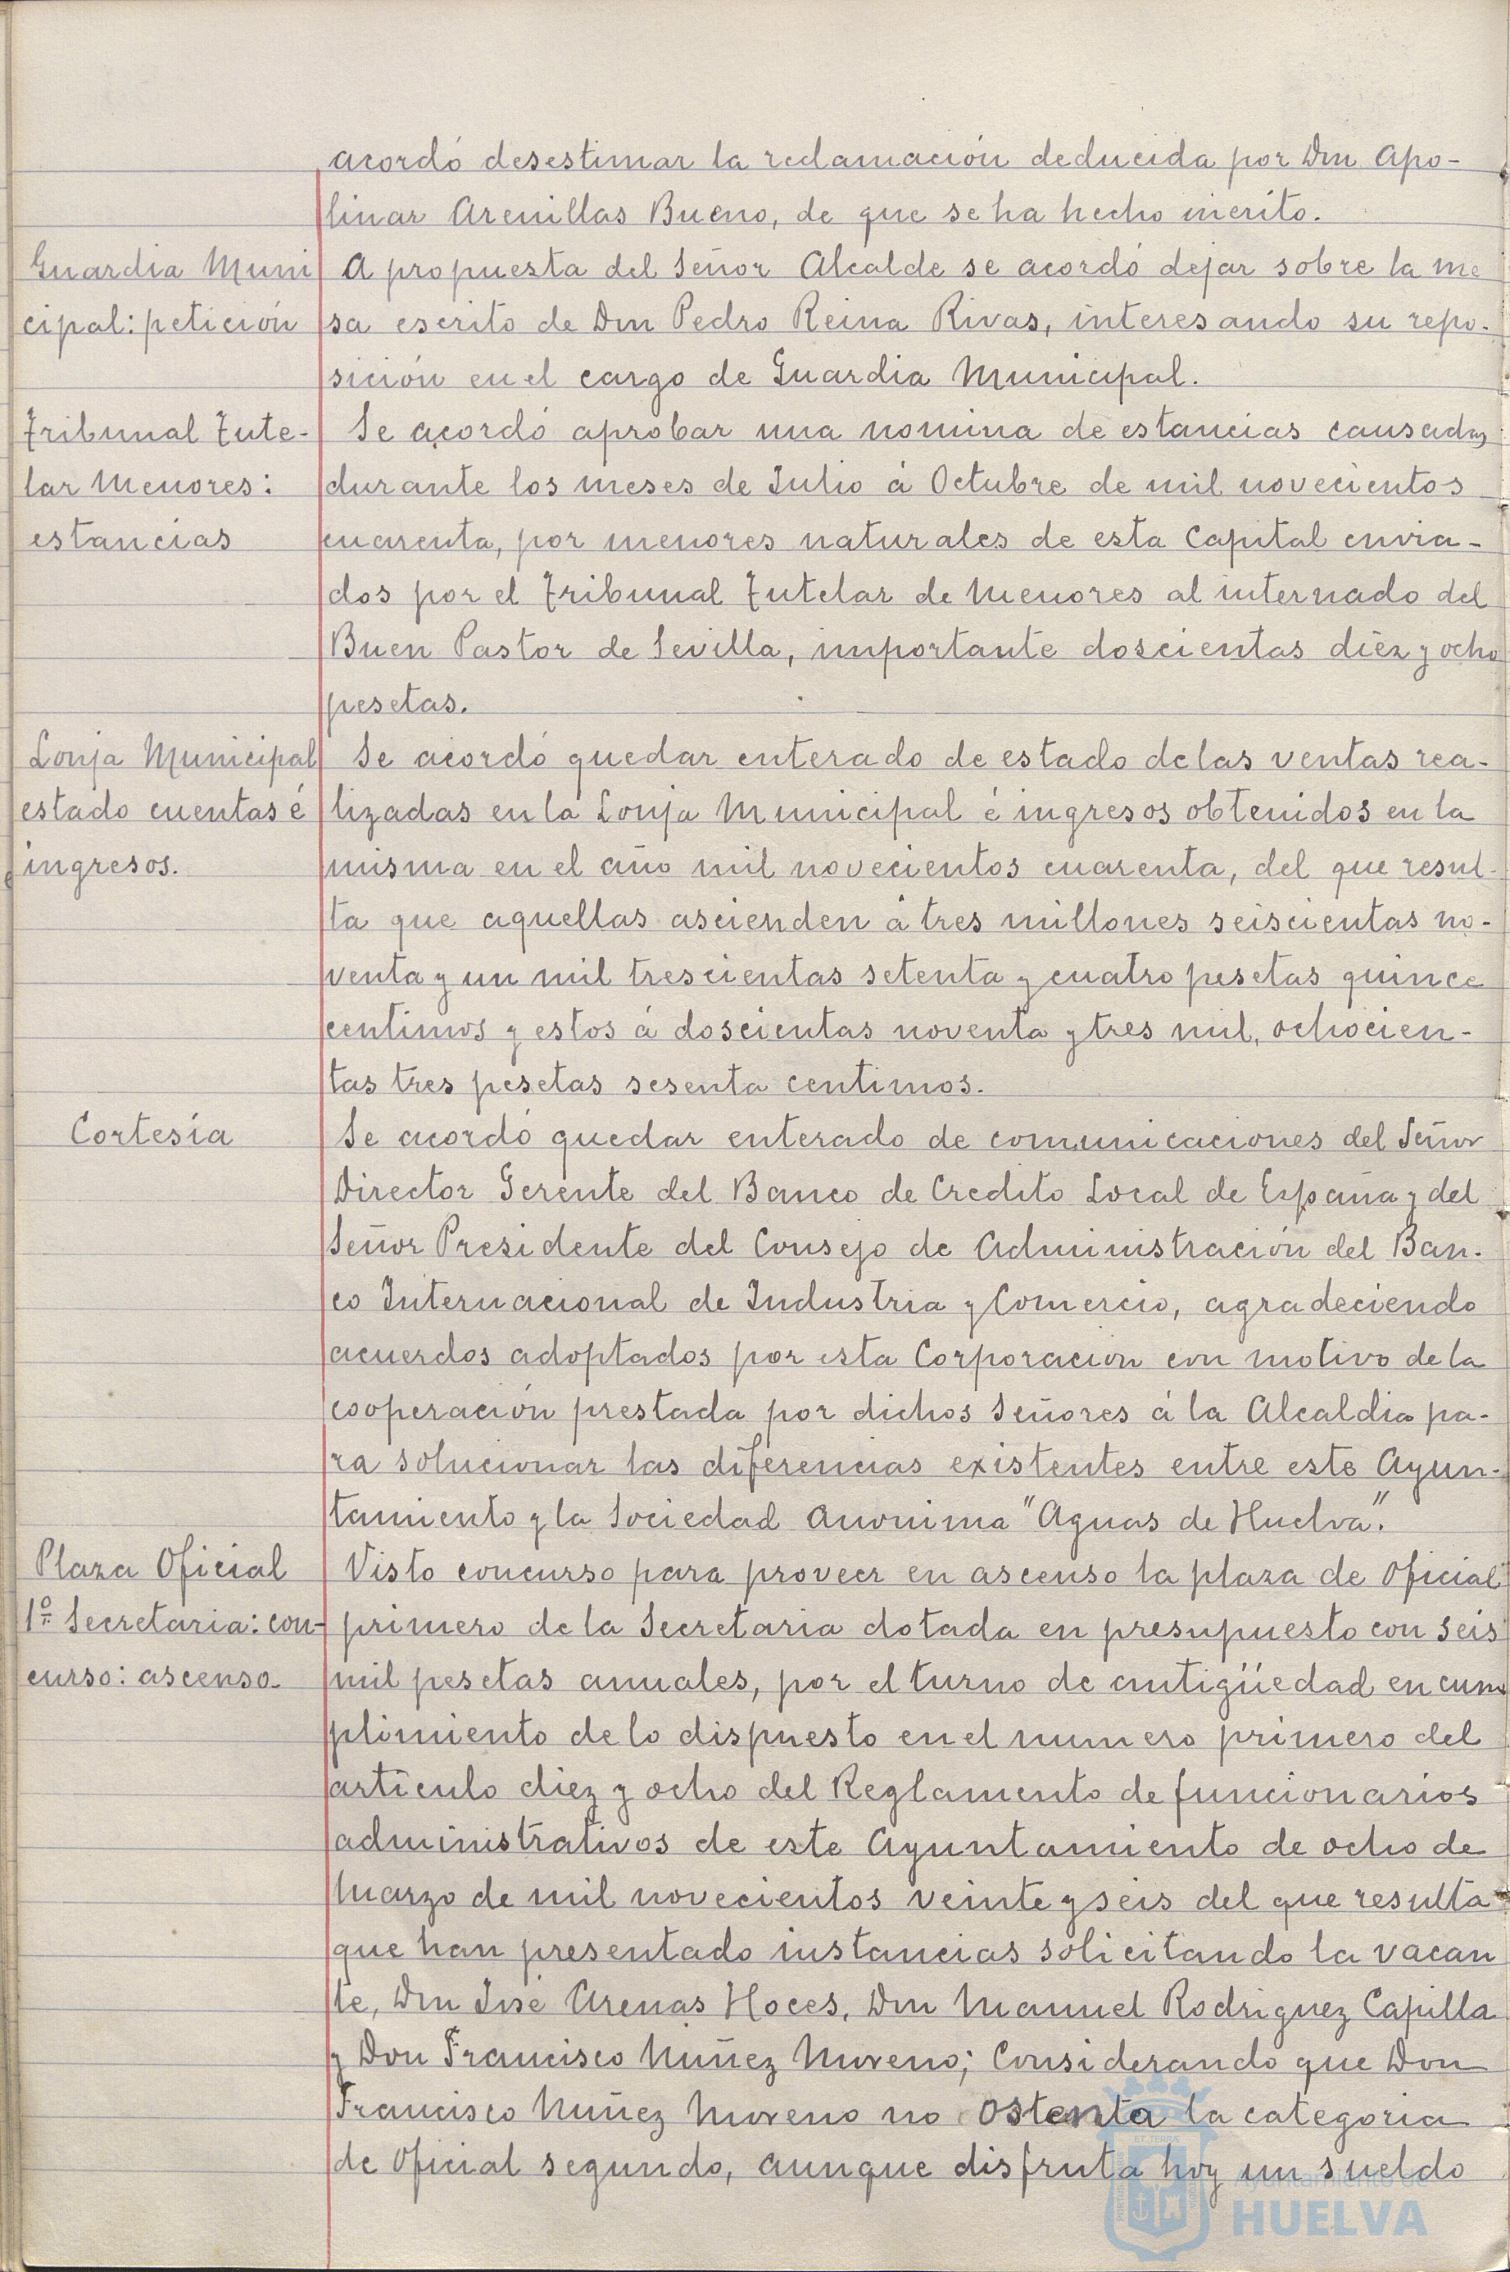 acordó desestimar la reclamación deducida por Don Apo-
linar Arenillas Bueno, de que se ha hecho merito.
Guardia Muni
cipal: petición
A propuesta del Señor Alcalde se acordó dejar sobre la me
sa escrito de Don Pedro Reina Rivas, interesando su repo-
sición en el cargo de Guardia Municipal.
Tribunal Tute-
lar Menores:
estancias
Se acordó aprobar una nomina de estancias causadas
durante los meses de Julio á Octubre de mil novecientos
cuarenta, por menores naturales de esta Capital envia-
dos por el Tribunal Tutelar de Menores al internado del
Buen Pastor de Sevilla, importante doscientas diez y ocho
pesetas.
Lonja Municipal
estado cuentas é
ingresos.
Se acordó quedar enterado de estado de las ventas rea-
lizadas en la Lonja Municipal é ingresos obtenidos en la
misma en el año mil novecientos cuarenta, del que resul-
ta que aquellas ascienden á tres millones seiscientas no-
venta y un mil trescientas setenta y cuatro pesetas quince
centimos y estos á doscientas noventa y tres mil, ochocien-
tas tres pesetas sesenta centimos.
Cortesía
Se acordó quedar enterado de comunicaciones del Señor
Director Gerente del Banco de Credito Local de España y del
Señor Presidente del Consejo de Administración del Ban-
co Internacional de Industria y Comercio, agradeciendo
acuerdos adoptados por esta Corporación con motivo de la
cooperación prestada por dichos Señores á la Alcaldia pa-
ra solucionar las diferencias existentes entre este Ayun-
tamiento y la Sociedad Anonima "Aguas de Huelva".
Plaza Oficial
1º Secretaria: con-
curso: ascenso.
Visto concurso para proveer en ascenso la plaza de Oficial
primero de la Secretaria dotada en presupuesto con seis
mil pesetas anuales, por el turno de antigüedad en cum
plimiento de lo dispuesto en el numero primero del
artículo diez y ocho del Reglamento de funcionarios
administrativos de este Ayuntamiento de ocho de
Marzo de mil novecientos veinte y seis del que resulta
que han presentado instancias solicitando la vacan
te, Don José Arenas Hoces, Don Manuel Rodriguez Capilla
y Don Francisco Nuñez Moreno; Considerando que Don
Francisco Nuñez Moreno no ostenta la categoria
de Oficial segundo, aunque disfruta hoy un sueldo
Ayuntamiento de
HUELVA